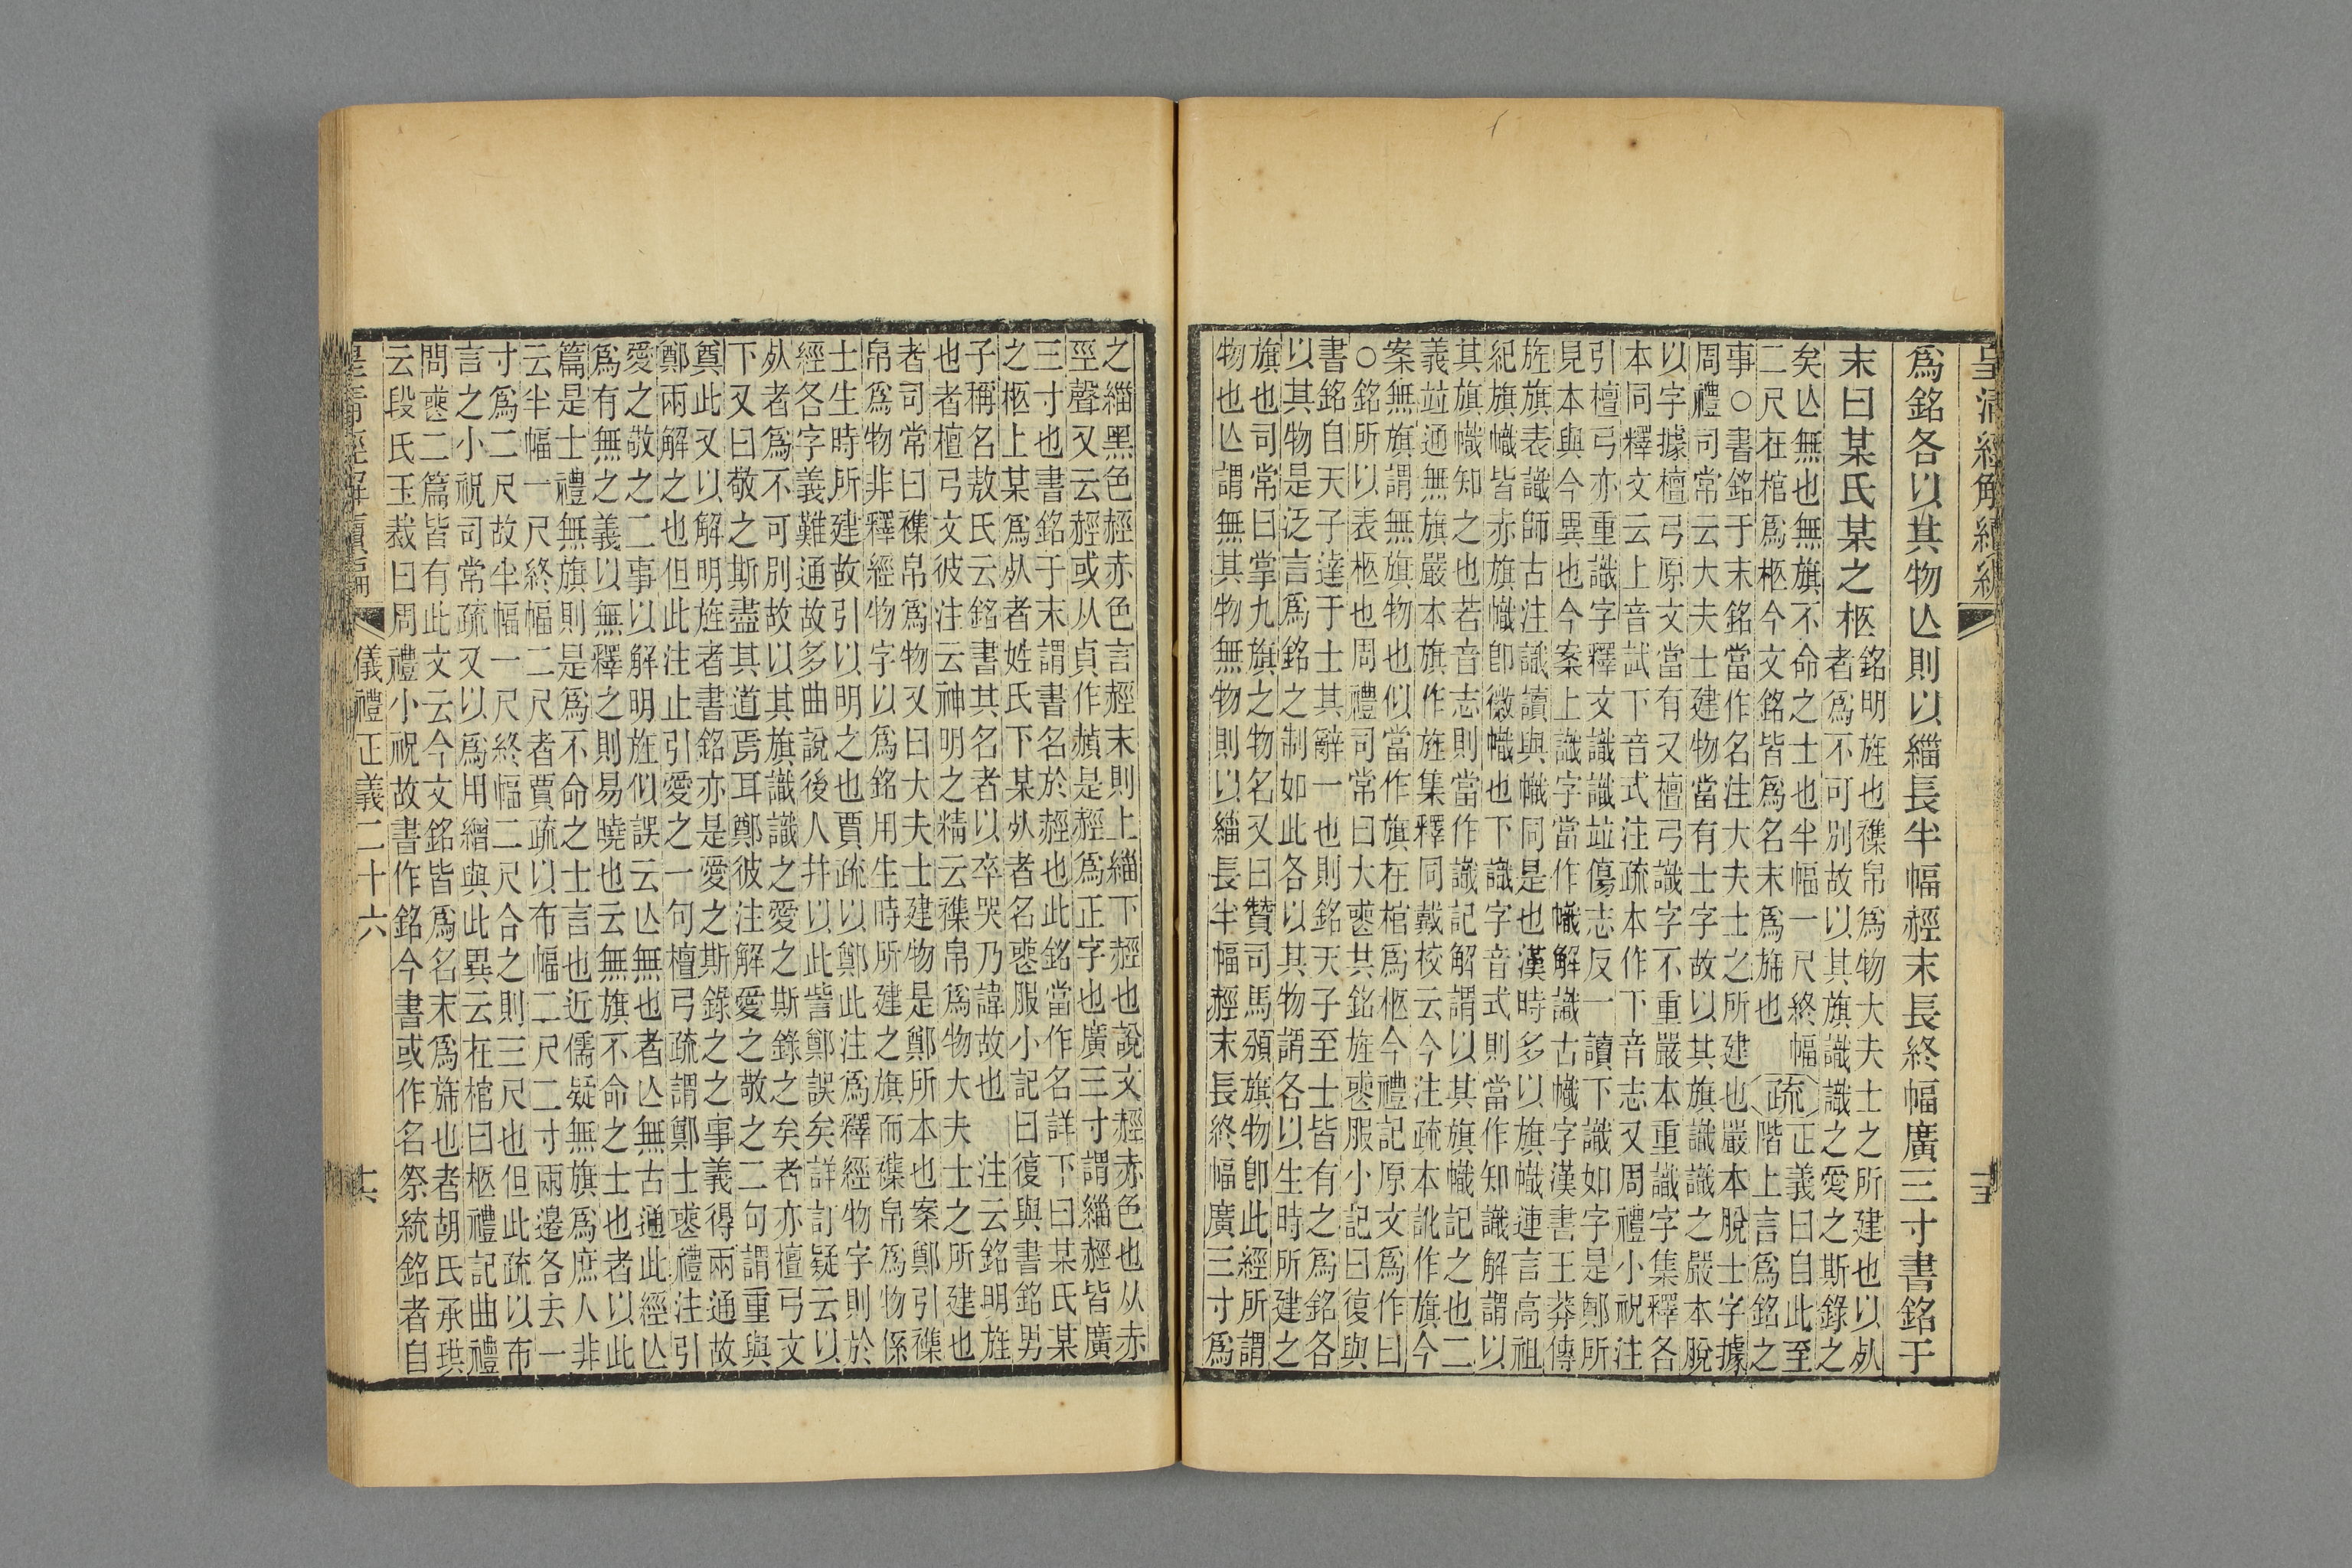 皇清經解續編
十五
爲銘各以其物亾則以緇長半幅䞓末長終幅廣三寸書銘于
末曰某氏某之柩
銘明旌也襍帛爲物大夫士之所建也以𣦸
者爲不可別故以其旗識識之愛之斯錄之
矣亾無也無旗不命之士也半幅一尺終幅
二尺在棺爲柩今文銘皆爲名末爲旆也
疏
正義曰自此至
階上言爲銘之
事○書銘于末銘當作名注大夫士之所建也嚴本脫士字據
周禮司常云大夫士建物當有士字故以其旗識識之嚴本脫
以字據檀弓原文當有又檀弓識字不重嚴本重識字集釋各
本同釋文云上音試下音式注疏本作下音志又周禮小祝注
引檀弓亦重識字釋文識識竝傷志反一讀下識如字是鄭所
見本與今異也今案上識字當作幟解識古幟字漢書王莽傳
旌旗表識師古注識讀與幟同是也漢時多以旗幟連言高祖
紀旗幟皆赤旗幟卽徽幟也下識字音式則當作知識解謂以
其旗幟知之也若音志則當作識記解謂以其旗幟記之也二
義竝通無旗嚴本旗作旌集釋同戴校云今注疏本訛作旗今
案無旗謂無旗物也似當作旗在棺爲柩今禮記原文爲作曰
○銘所以表柩也周禮司常曰大喪共銘旌喪服小記曰復與
書銘自天子達于士其辭一也則銘天子至士皆有之爲銘各
以其物是泛言爲銘之制如此各以其物謂各以生時所建之
旗也司常曰掌九旗之物名又曰贊司馬頒旗物卽此經所謂
物也亾謂無其物無物則以緇長半幅䞓末長終幅廣三寸爲
之緇黑色䞓赤色言䞓末則上緇下䞓也說文䞓赤色也从赤
巠聲又云䞓或从貞作赬是䞓爲正字也廣三寸謂緇䞓皆廣
三寸也書銘于末謂書名於䞓也此銘當作名詳下曰某氏某
之柩上某爲𣦸者姓氏下某𣦸者名喪服小記曰復與書銘男
子稱名敖氏云銘書其名者以卒哭乃諱故也 注云銘明旌
也者檀弓文彼注云神明之精云襍帛爲物大夫士之所建也
者司常曰襍帛爲物又曰大夫士建物是鄭所本也案鄭引襍
帛爲物非釋經物字以爲銘用生時所建之旗而襍帛爲物係
士生時所建故引以明之也賈疏以鄭此注爲釋經物字則於
經各字義難通故多曲說後人幷以此訾鄭誤矣詳訂疑云以
𣦸者爲不可別故以其旗識識之愛之斯錄之矣者亦檀弓文
下又曰敬之斯盡其道焉耳鄭彼注解愛之敬之二句謂重與
奠此又以解明旌者書銘亦是愛之斯錄之之事義得兩通故
鄭兩解之也但此注止引愛之一句檀弓疏謂鄭士喪禮注引
愛之敬之二事以解明旌似誤云亾無也者亾無古通此經亾
爲有無之義以無釋之則易曉也云無旗不命之士也者以此
篇是士禮無旗則是爲不命之士言也近儒疑無旗爲庶人非
云半幅一尺終幅二尺者賈疏以布幅二尺二寸兩邊各去一
寸爲二尺故半幅一尺終幅二尺合之則三尺也但此疏以布
言之小祝司常疏又以爲用繒與此異云在棺曰柩禮記曲禮
問喪二篇皆有此文云今文銘皆爲名末爲旆也者胡氏承珙
云段氏玉裁曰周禮小祝故書作銘今書或作名祭統銘者自
皇清經解續編
儀禮正義二十六
十六